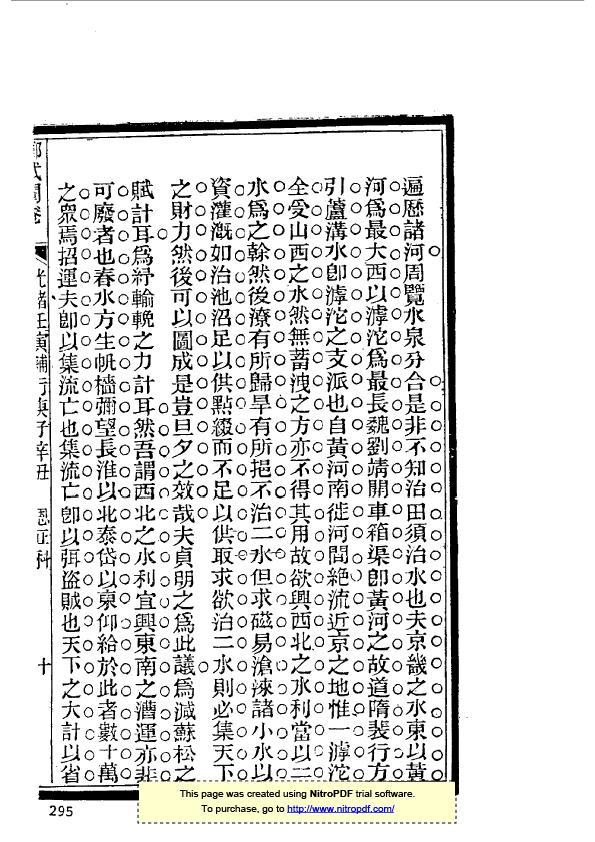 遍歷諸河周覽水泉分合是非不知治田須治水也夫京畿之水東以黃
河爲最大西以滹沱爲最長魏劉靖開車箱渠卽黃河之故道隋裴行方
引蘆溝水卽滹沱之支派也自黃河南徙河間絕流近京之地惟一滹沱
全受山西之水然無蓄洩之方亦不得其用故欲興西北之水利當以二
水爲之幹然後潦有所歸旱有所挹不治二水但求磁易滄淶諸小水以
資灌漑如治池沼足以供點綴而不足以供取求欲治二水則必集天下
之財力然後可以圖成是豈旦夕之效哉夫貞明之爲此議爲減蘇松之
賦計耳爲紓輸輓之力計耳然吾謂西北之水利宜興東南之漕運亦非
可廢者也春水方生帆檣彌望長淮以北泰岱以東仰給於此者數十萬
之衆焉招運夫卽以集流亡也集流亡卽以弭盜賊也天下之大計以省
鄉試闈卷 光緖壬寅補行庚子辛丑 恩正科 十
295
This page was created using NitroPDF trial software.
To purchase, go to http://www.nitropdf.com/